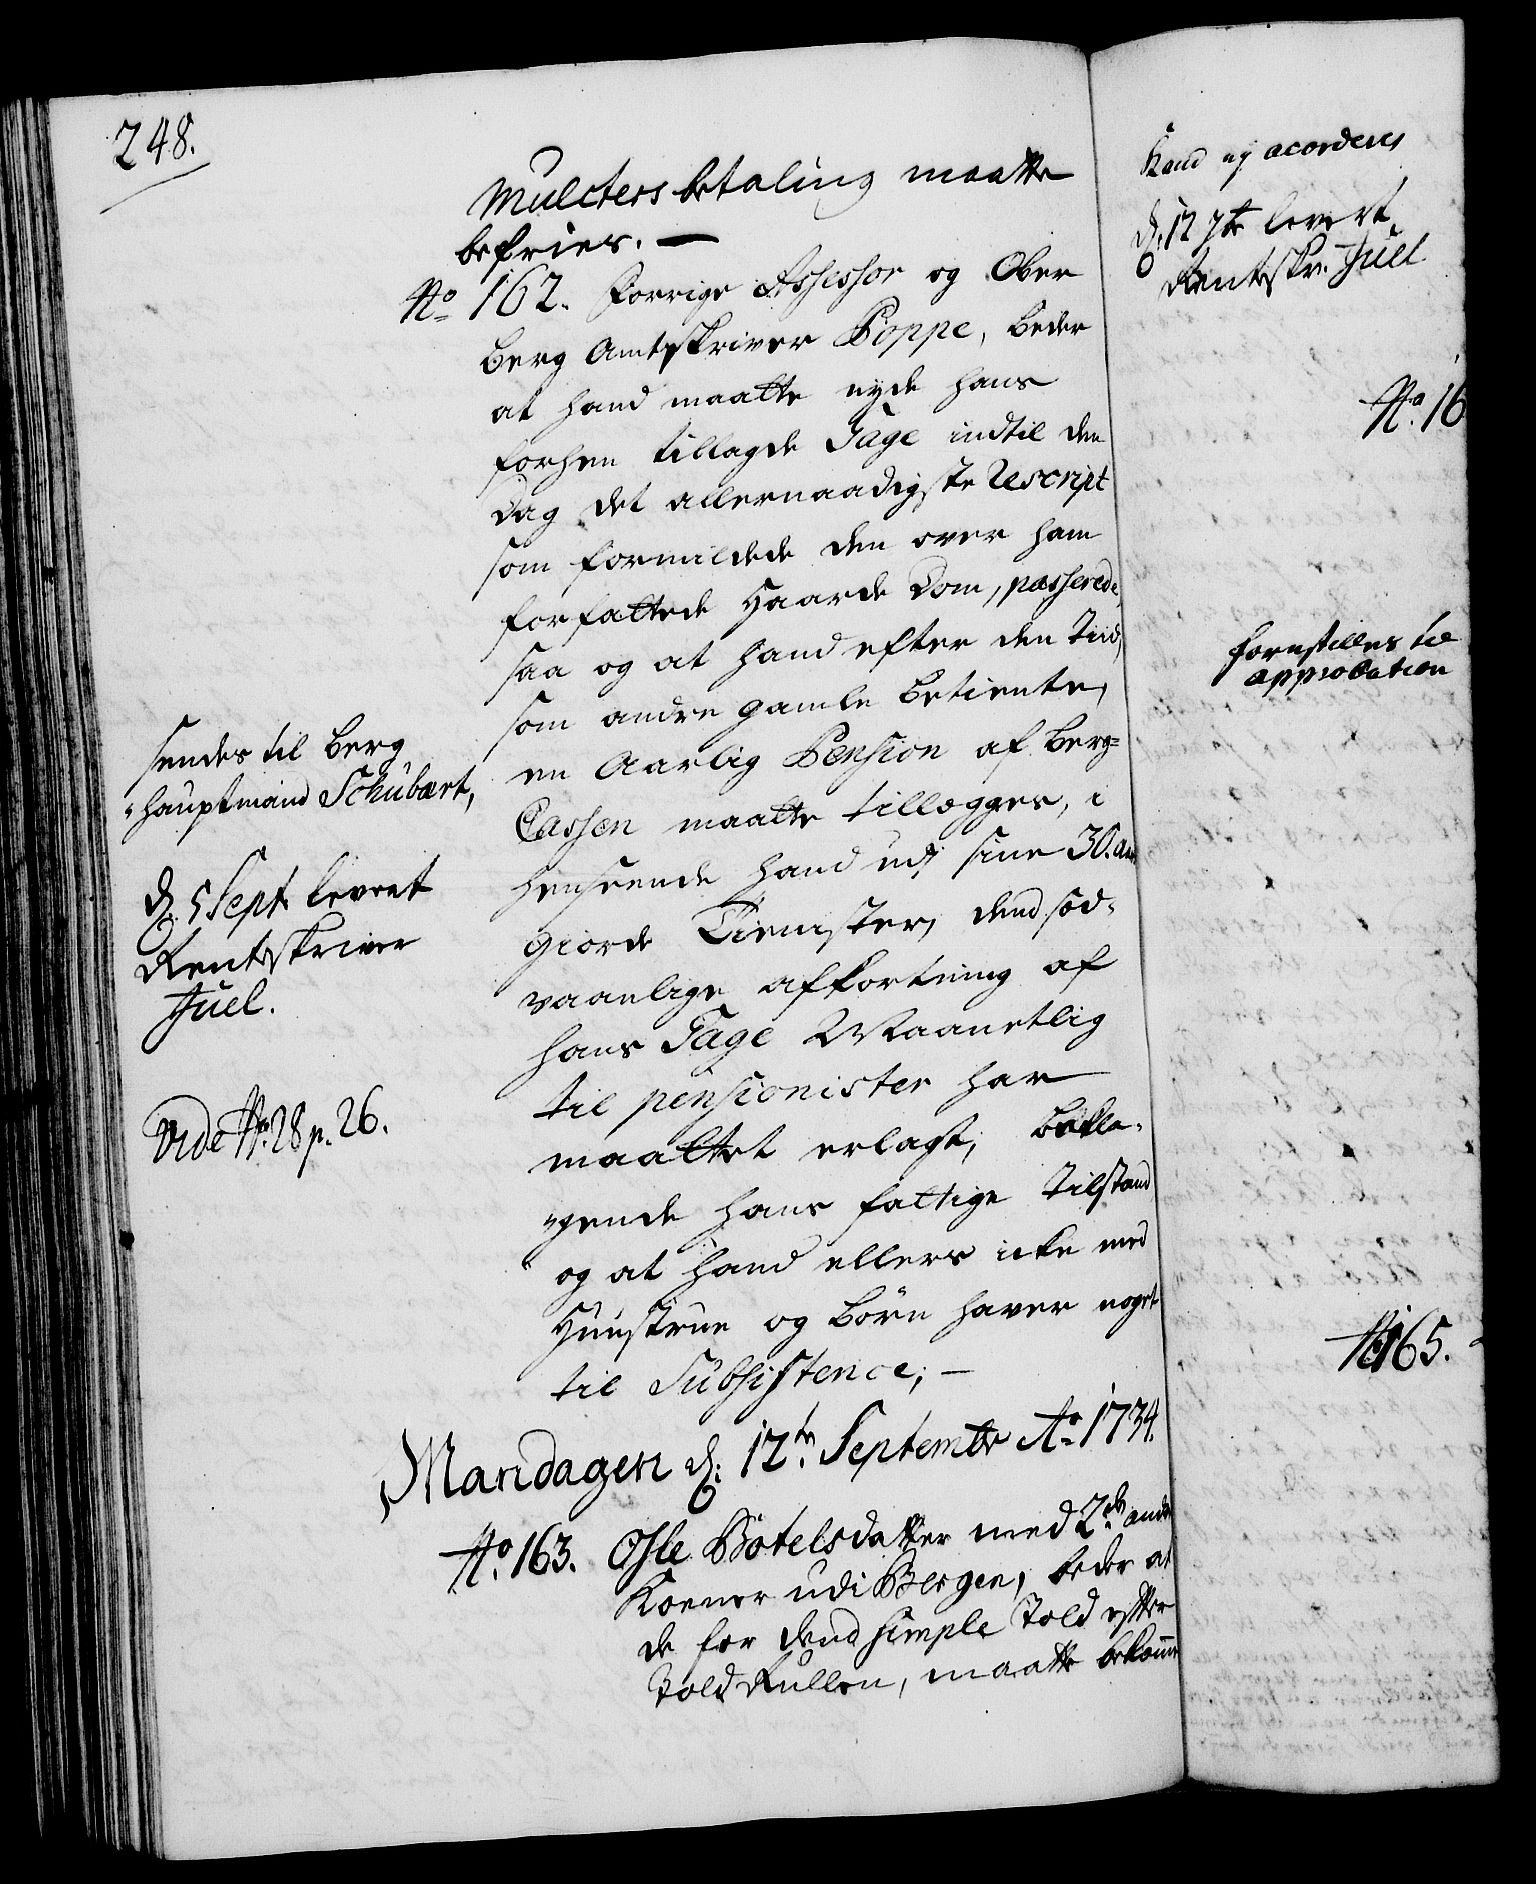 248.
Mulcters betaling maatte
befries. —
No 162. Forrige Assessor og Ober
Berg Amtskriver Poppe, beder
at hand maatte nyde hans
forhen tillagde Gage indtil den
Dag det allernaadigste Rescript
som formildede den over ham
forfattede Haarde Dom, passerede,
saa og at hand efter den Tiid,
som andre gamle betiente,
en Aarlig Pension af Berg=
Cassen maatte tillegges, i
henseende hand udj sine 30. aar
giorde Tienister, dend sæd-
vaanlige afkortning af
hans Gage Maanetlig
til pensionister har
maattet erlagt, bekla-
gende hans fattige tilstand
og at hand ellers icke med
Huustrue og Børn haver noget
til Subsistence; —
sendes til Berg
-hauptmand Schubært,
d. 5 Sept. leveret
Rentskriver
Juel.
Vide No. 28 p. 26.
Mandagen d: 12te Septembr Ao 1734.
No. 163. Osle Botelsdatter med 2de andre
Koener udi Bergen, beder at
de for dend simple Told efter
Told Rullen, maatte bekomme
Kand ej acorderes
d: 12 7br levert
Rentskr. Juel
No. 16
forestilles til
approbation
No 165.